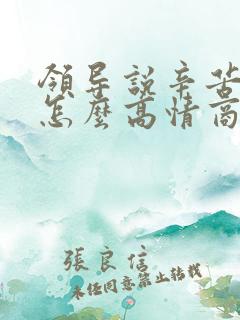 領导說辛苦
怎麼高情商
張良信
未经同意禁止转载